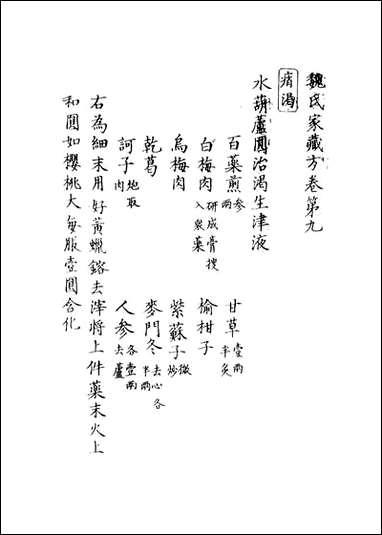 魏氏家藏方卷第九
痟渴
水葫蘆圓治渴生津液
百藥煎叁兩 甘草壹兩半炙
白梅肉研成膏搜入衆藥 偷柑子
烏梅肉 紫蘇子微炒
乾葛 麥門冬去心各半兩
訶子炮取肉 人参各壹兩去蘆
右為細末用好黃蠟鎔去滓將上件藥末火上
和圓如櫻桃大每服壹圓含化